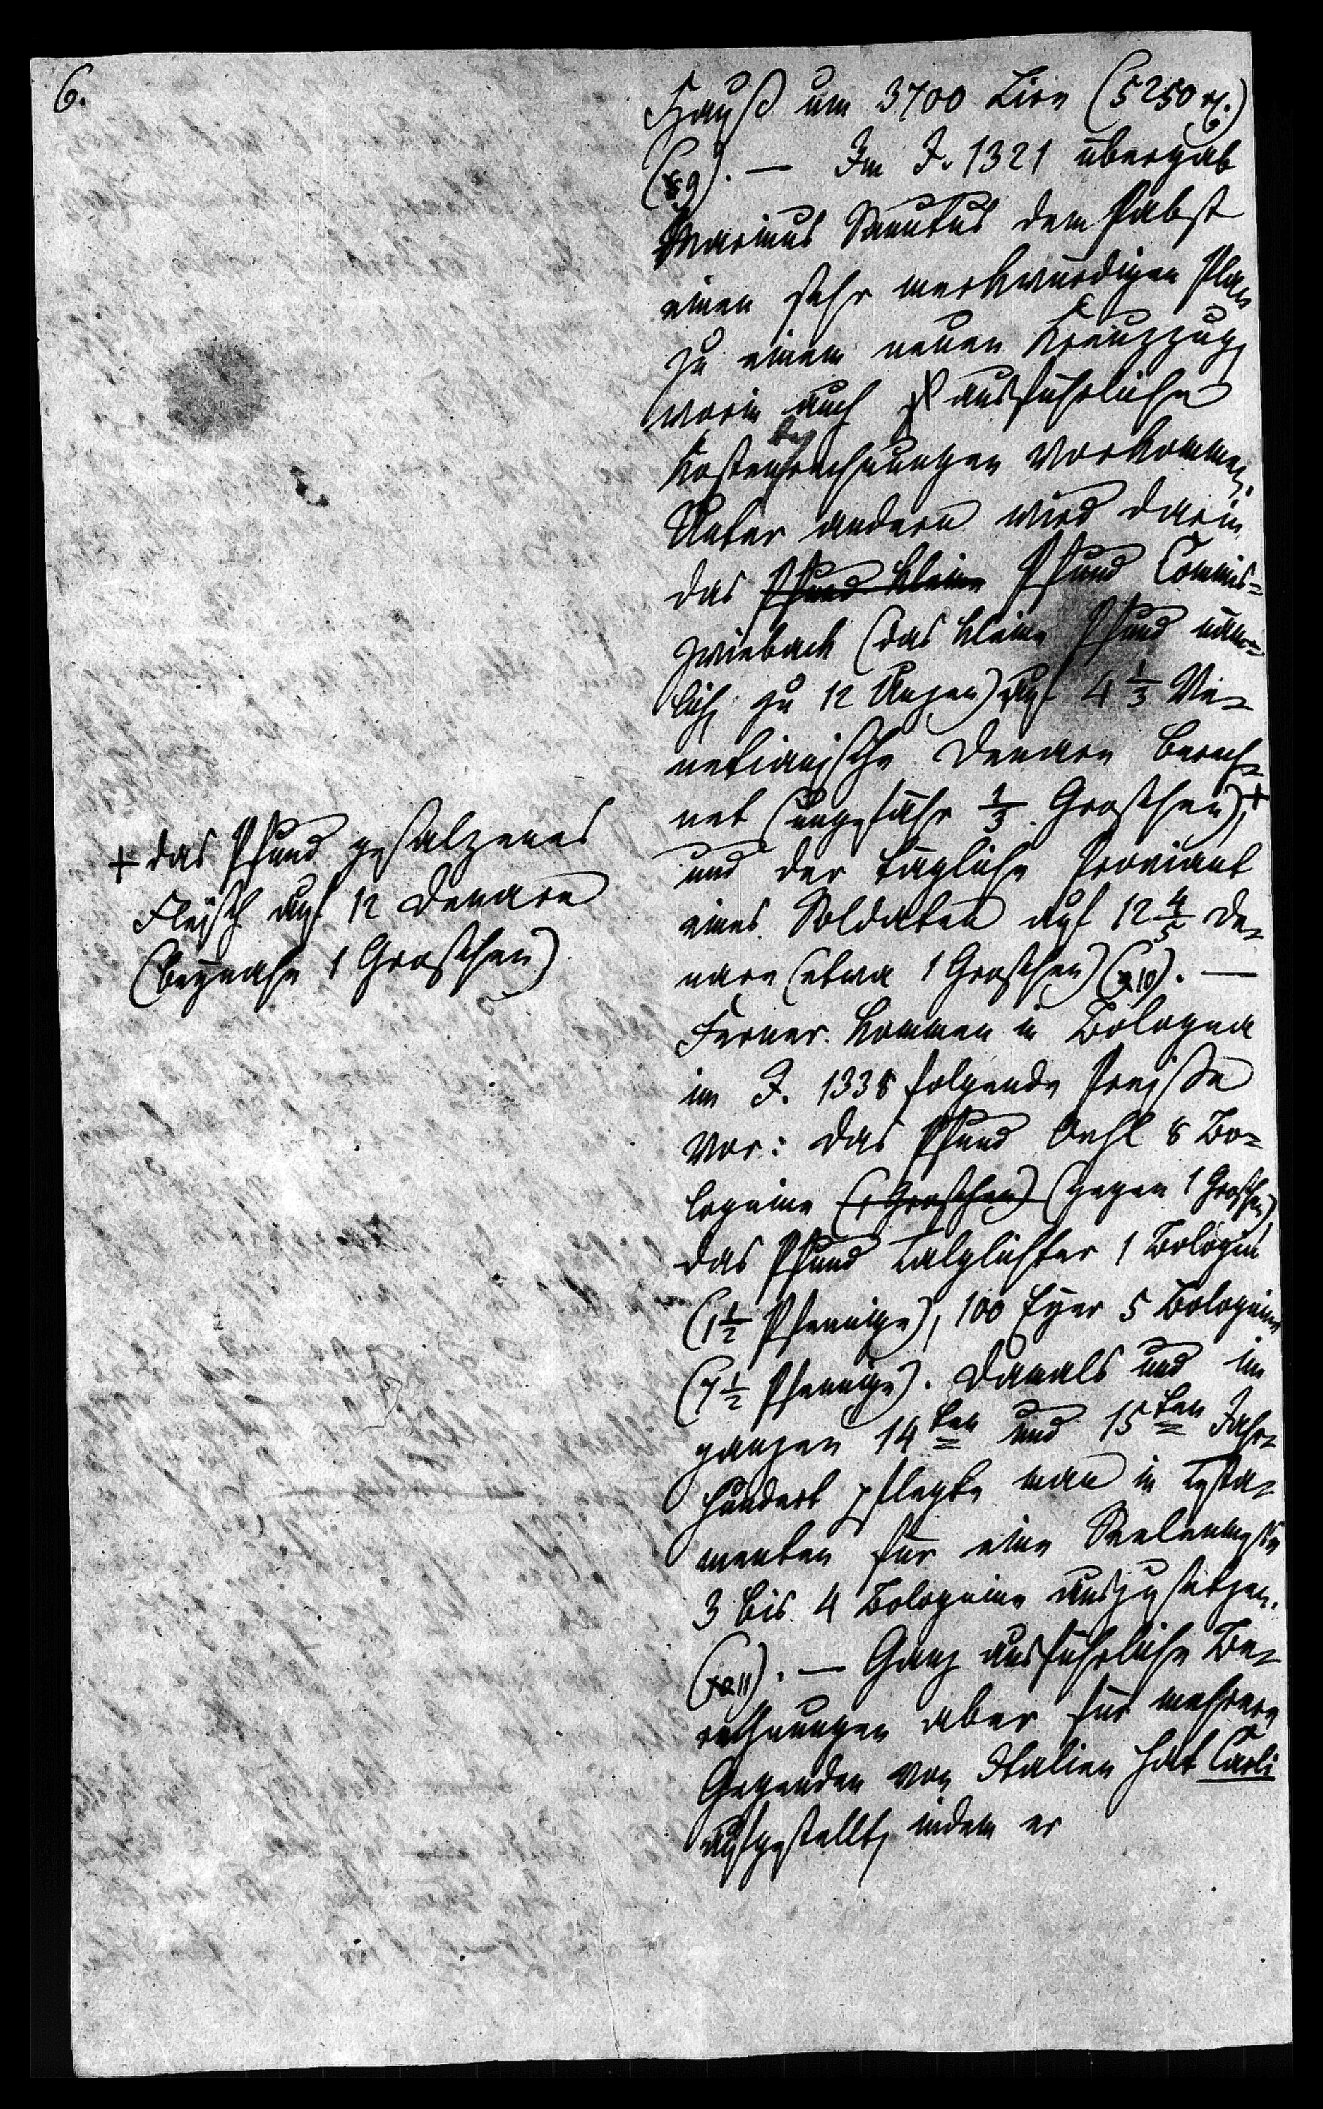 6.
Hauß um 3700 Lire (5250 rf.)
(9). — Im J. 1321 übergab
Marinus Sanutus dem Pabst
einen sehr merkwürdigen Plan
zu einem neuen Kreuzzug,
worin auch ausführliche
Kostenberechnungen vorkommen.
Unter andern wird darin
das Pfund kleine Pfund Commis=
zwieback (das kleine Pfund näm=
lich zu 12 Unzen) auf 4 1/3 Ve=
netianische Denare berech=
net (ungefähr 1/3 Groschen), +
und der tägliche Proviant
eines Soldaten auf 12 4/5 De=
nare (etwa 1 Groschen) (10). —
Ferner kommen in Bologna
im J. 1338 folgende Preiße
vor: das Pfund Oehl 8 Bo=
lognine (1 Groschen) (gegen 1 Groschen)
das Pfund Talglichter 1 Bolognin
(1 1/2 Pfennige), 100 Eyer 5 Bolognine
(7 1/2 Pfennige). Damals und im
ganzen 14ten und 15ten Jahr=
hundert pflegte man in Testa=
menten für eine Seelenmesse
3 bis 4 Bolognine auszusetzen.
(11). — Ganz ausführliche Be=
rechnungen aber für mehrere
Gegenden von Italien hat Carli
aufgestellt, indem er
+ das Pfund gesalzenes
Fleisch auf 12 Denare
(beynahe 1 Groschen)